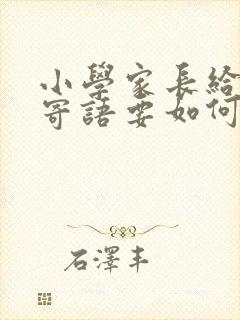 小學家長給
寄語要如何
石澤丰